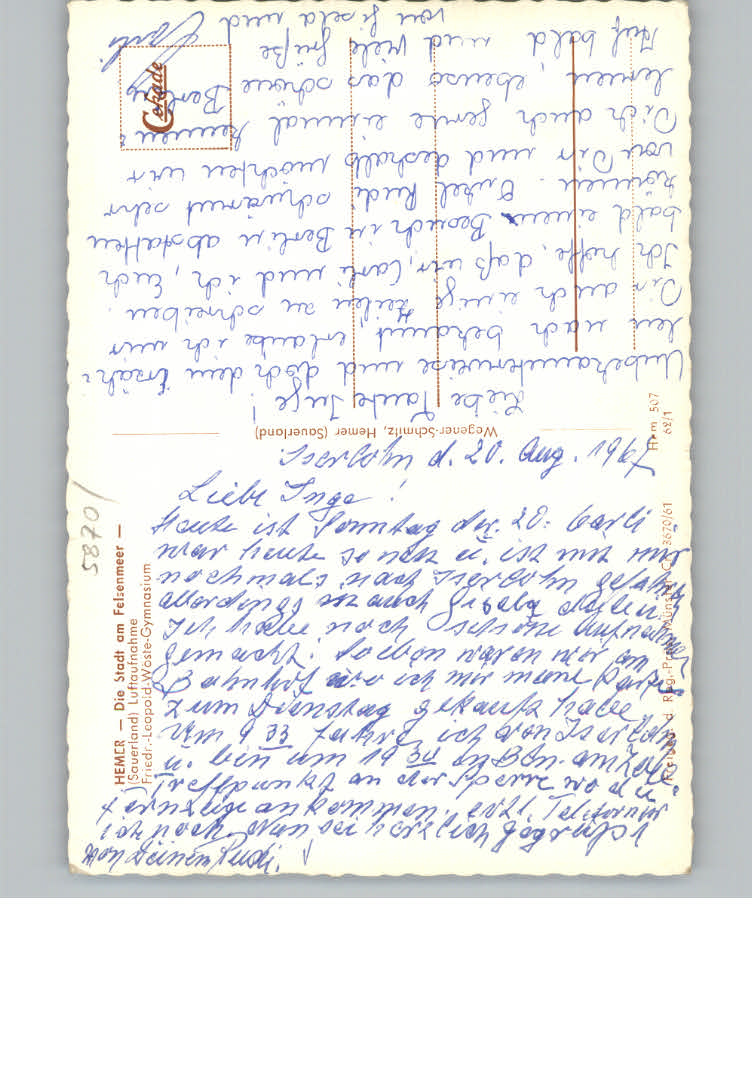 Liebe Tante Inge!
Unbekannterweise und doch dem Erzäh-
len nach bekannt erlaube ich mir
Dir auch einige Zeilen zu schreiben.
Ich hoffe, daß wir, Carli und ich, Euch
bald einen Besuch in Berlin abstatten
können. Onkel Rudi schwärmt sehr
von Dir und deshalb möchten wir
Dich auch gerne einmal kennen-
lernen, ebenso das schöne Berlin
Auf bald und viele Grüße
von Gisela und
Carli
Cekade
Wegener-Schmitz, Hemer (Sauerland)
Hem 507
62/1
Iserlohn d. 20. Aug. 1967
Liebe Inge!
Heute ist Sonntag der 20. Carli
war heute so nett u. ist mit mir
nochmals nach Iserlohn gefahren
allerdings auch Gisela
Ich habe noch schöne Aufnahmen
gemacht. Soeben waren wir am
Bahnhof wo ich mir meine Karte
zum Dienstag gekauft habe
Um 9 33 fahre ich von Iserlohn
u. bin um 19 30 in Bln. am Zoo.
Treffpunkt an der Sperre wo die
Fernzüge ankommen. evtl. Telefonier
ich noch. Nun sei herzlich gegrüßt
von Deinem Rudi.
HEMER — Die Stadt am Felsenmeer —
(Sauerland) Luftaufnahme
Friedr.-Leopold-Woeste-Gymnasium
5870/
Freigeg. d. Reg.-Präs. Münster 3670/61